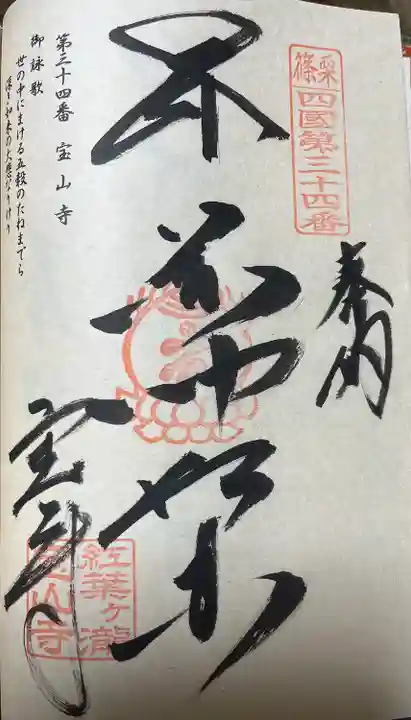 篠栗
四國第三十四番
奉納
宝山寺
紅葉ヶ瀧
宝山寺
第三十四番 宝山寺
御詠歌
世の中にまける五穀のたねまでら
如来の大悲なりけり